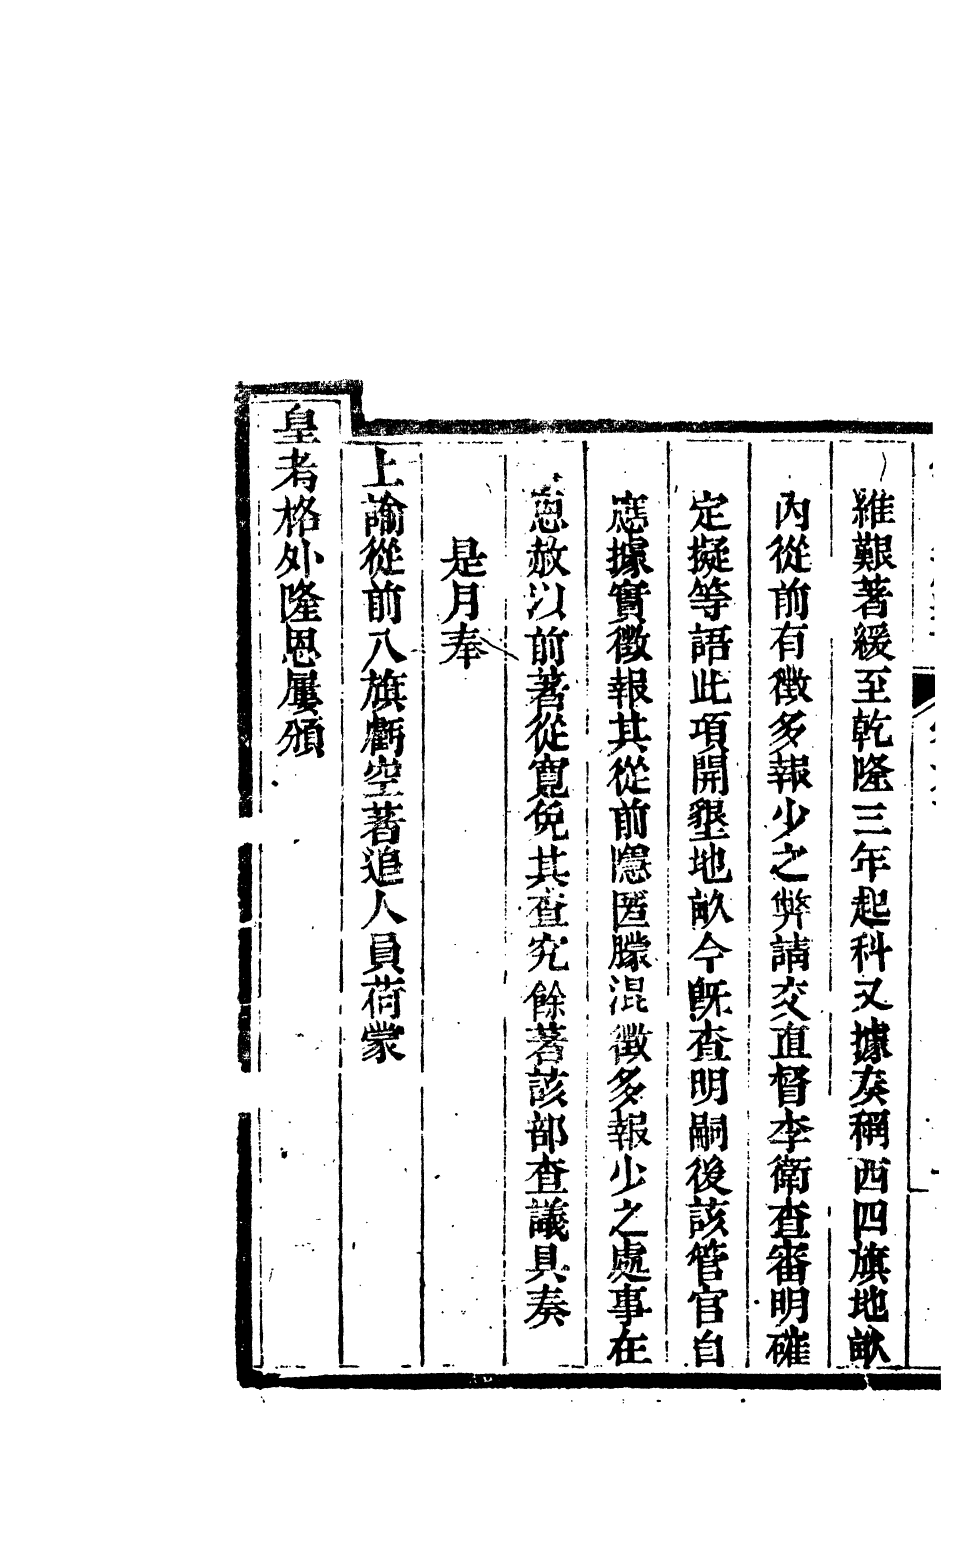 維艱著緩至乾隆三年起科又據奏稱西四旗地畝
內從前有徵多報少之弊請交直督李衛查審明確
定擬等語此項開墾地畝今旣查明嗣後該管官自
應據實徵報其從前隱匿朦混徵多報少之處事在
恩赦以前著從寬免其查究餘著該部查議具奏
是月奉
上諭從前八旗虧空著追人員荷蒙
皇考格外隆恩屢頒